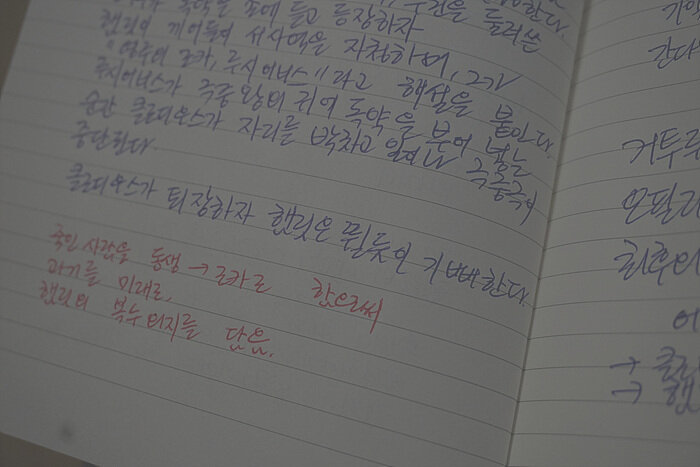 독약을 손에 들고 등장하자
햄릿이 끼어들어 서사역을 자청하며, 그가
"영주의 조카, 루시어너스"라고 해설을 붙인다.
루시어너스가 극중 왕의 귀에 독약을 부어 넣는
순간 클로디어스가 자리를 박차고 일어나 극중극이
중단된다.
클로디어스가 퇴장하자 햄릿은 뛸듯이 기뻐한다.
죽인 사람을 동생 → 조카로 함으로써
과거를 미래로,
햄릿의 복수 의지를 담음.
거투루
오필리
최후의
에
→ 클
→ 햄